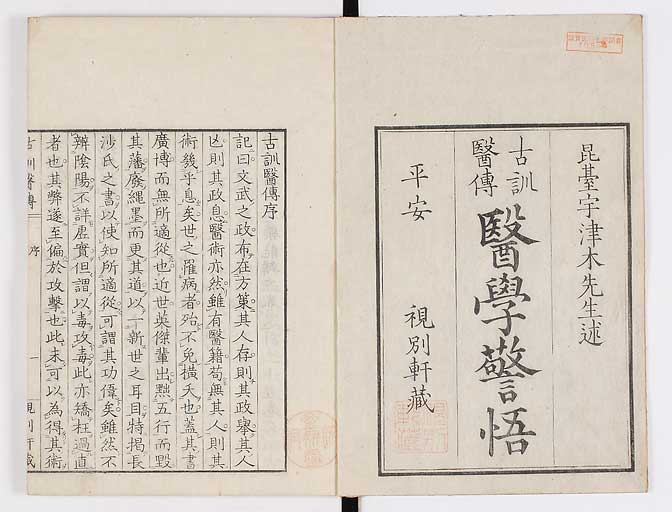 昆臺宇津木先生述
古訓
醫傳
醫學警悟
平安
視別軒藏
古訓醫傳序
記曰文武之政布在方策其人存則其政舉其人
亡則其政息醫術亦然雖有醫籍苟無其人則其
術幾乎息矣世之罹病者殆不免橫夭也蓋其書
廣博而無所適從也近世英傑輩出黜五行而毀
其藩廢繩墨而更其道以一新世之耳目特揭長
沙氏之書以使知所適從可謂其功偉矣雖然不
辨陰陽不詳虛實但謂以毒攻毒此亦矯枉過直
者也其弊遂至偏於攻擊也此未可以為得其術
古訓醫傳
序
一
視別軒藏